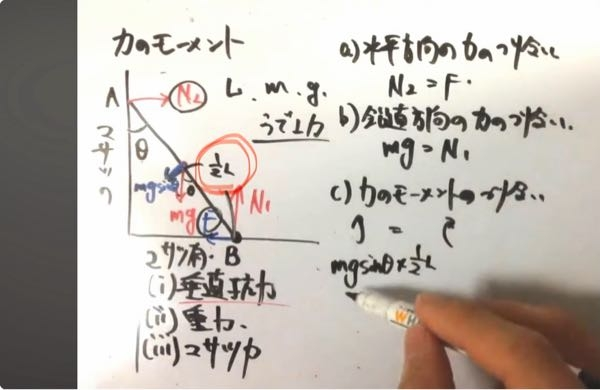 力のモーメント
A
N₂
L. m. g.
うで⊥力
θ
マサツ0
1/2 L
mgsinθ
θ
mg
N₁
f
マサツ有. B
(i) 垂直抗力
(ii) 重力.
(iii) マサツ力
a) 水平方向の力のつり合い
N₂ = F.
b) 鉛直方向の力のつり合い.
mg = N₁
c) 力のモーメントのつり合い
=
mgsinθ × 1/2 L
WH